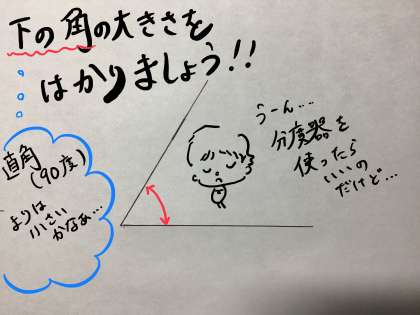 下の角の大きさを
はかりましょう!!
直角
(90度)
よりは
小さい
かなぁ…
うーん…
分度器を
使ったら
いいの
だけど…